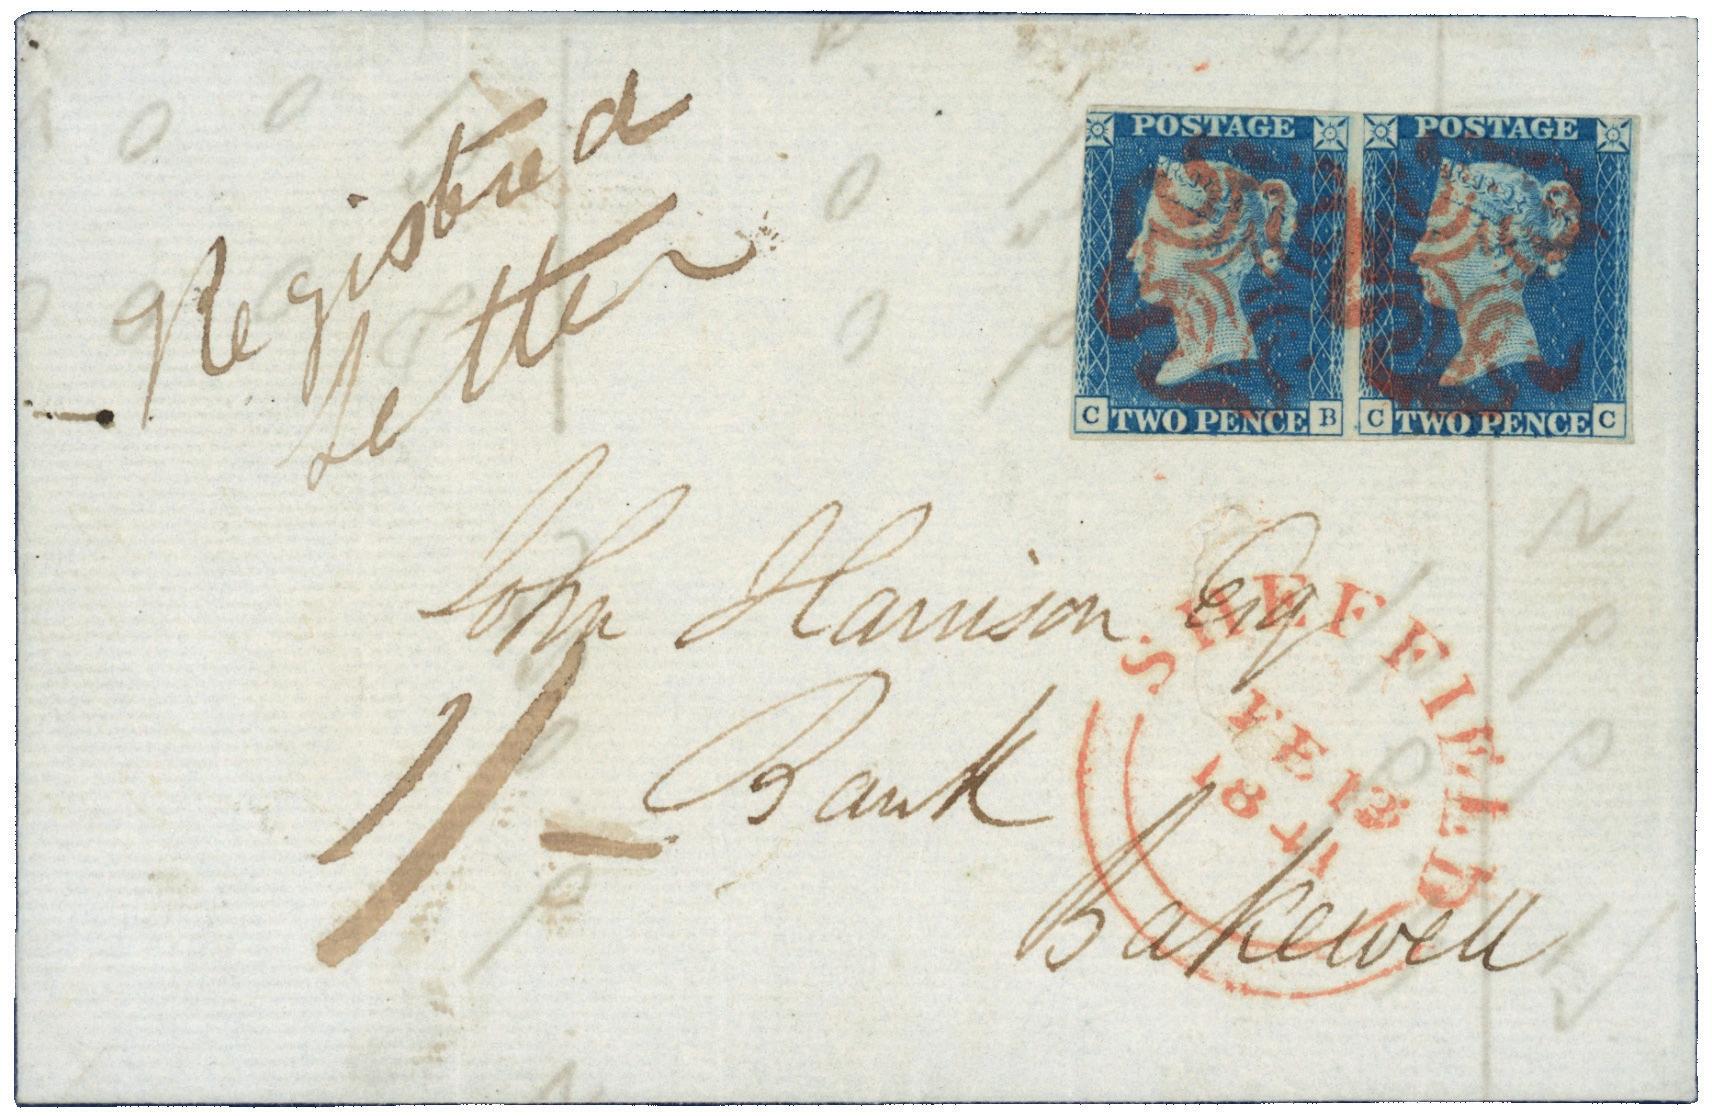 Registred
Letter
POSTAGE POSTAGE
C TWO PENCE B C TWO PENCE C
John Harrison Esq
1/-
Bank
Bakewell
SHEFFIELD
FE 13
1841